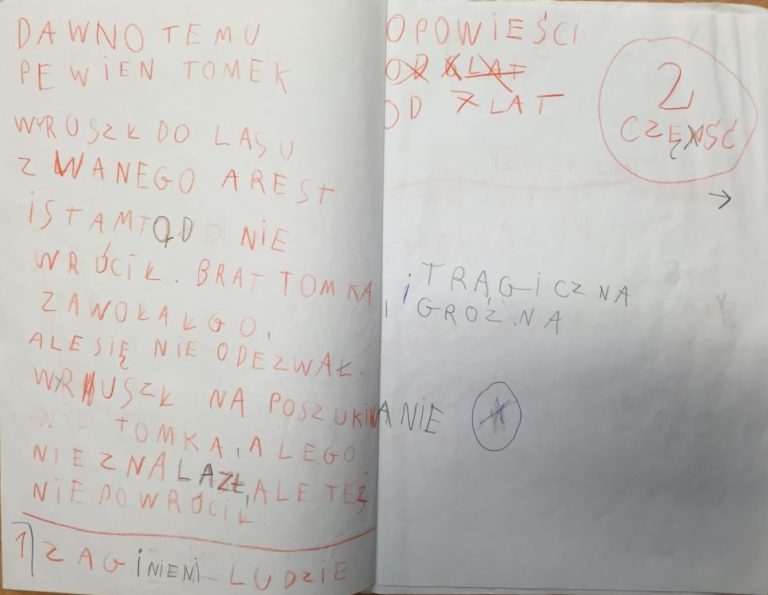 DAWNO TEMU
PEWIEN TOMEK
WYRUSZŁ DO LASU
ZWANEGO AREST
I STAMTĄD NIE
WRÓCIŁ. BRAT TOMKA
ZAWOŁAŁ GO,
ALE SIĘ NIE ODEZWAŁ.
WYRUSZŁ NA POSZUKIWANIE
TOMKA, ALE GO
NIE ZNALAZŁ, ALE TEŻ
NIE POWRÓCIŁ.
1) ZAGINIENI LUDZIE
OPOWIEŚCI
OD 7 LAT
2
CZĘŚĆ
→
i TRAGICZNA
I GROŹNA